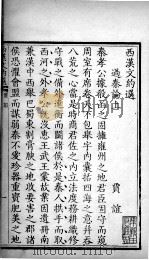 西漢文約選
過秦論上
賈誼
秦孝公據殽函之固擁雍州之地君臣固守而窺
周室有席卷天下包舉宇內囊括四海之意并吞
八荒之心當是時商君佐之內立法度務耕織修
守戰之備外連衡而鬭諸侯於是秦人拱手而取
西河之外孝公既沒惠王武王蒙故業因遺策南
兼漢中西舉巴蜀東割膏腴之地收要害之郡諸
侯恐懼會盟而謀弱秦不愛珍器重寶肥美之地